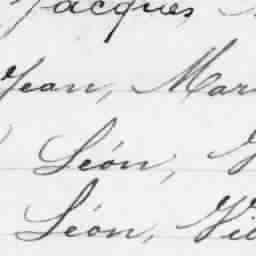 Jacques
Jean, Mar
Léon,
Léon, Vic